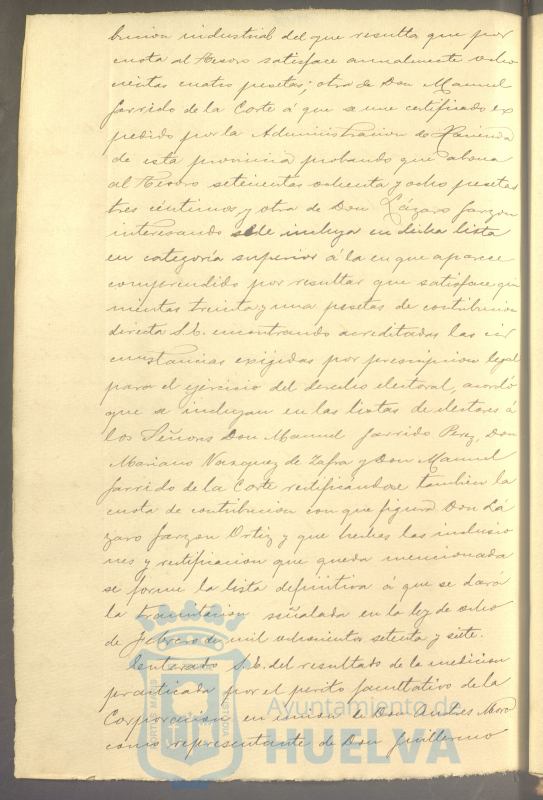 bucion industrial del que resulta que por
cuota al Tesoro satisface anualmente ocho
cientas cuatro pesetas; otra de Don Manuel
Garrido de la Corte á que se une certificado ex
pedido por la Administracion de Hacienda
de esta provincia probando que abona
al Tesoro setecientas ochenta y ocho pesetas
tres centimos y otra de Don Lázaro Garzon
interesando se le incluya en dicha lista
en categoría superior á la en que aparece
comprendido por resultar que satisface qui
nientas treinta y una pesetas de contribucion
directa S.E. encontrando acreditadas las cir
cunstancias exijidas por prescripcion legal
para el ejercicio del derecho electoral, acordó
que se incluyan en las listas de electores á
los Señores Don Manuel Garrido Perez, Don
Mariano Vazquez de Zafra y Don Manuel
Garrido de la Corte rectificándose tambien la
cuota de contribucion con que figura Don Lá
zaro Garzon Ortiz y que hechas las inclusio
nes y rectificacion que queda mencionada
se forme la lista definitiva á que se dará
la tramitacion señalada en la ley de ocho
de Febrero de mil ochocientos setenta y siete.
Enterado S.E. del resultado de la medicion
practicada por el perito facultativo de la
Corporacion en union de Don Andres Mora
como representante de Don Guillermo
Ayuntamiento de
HUELVA